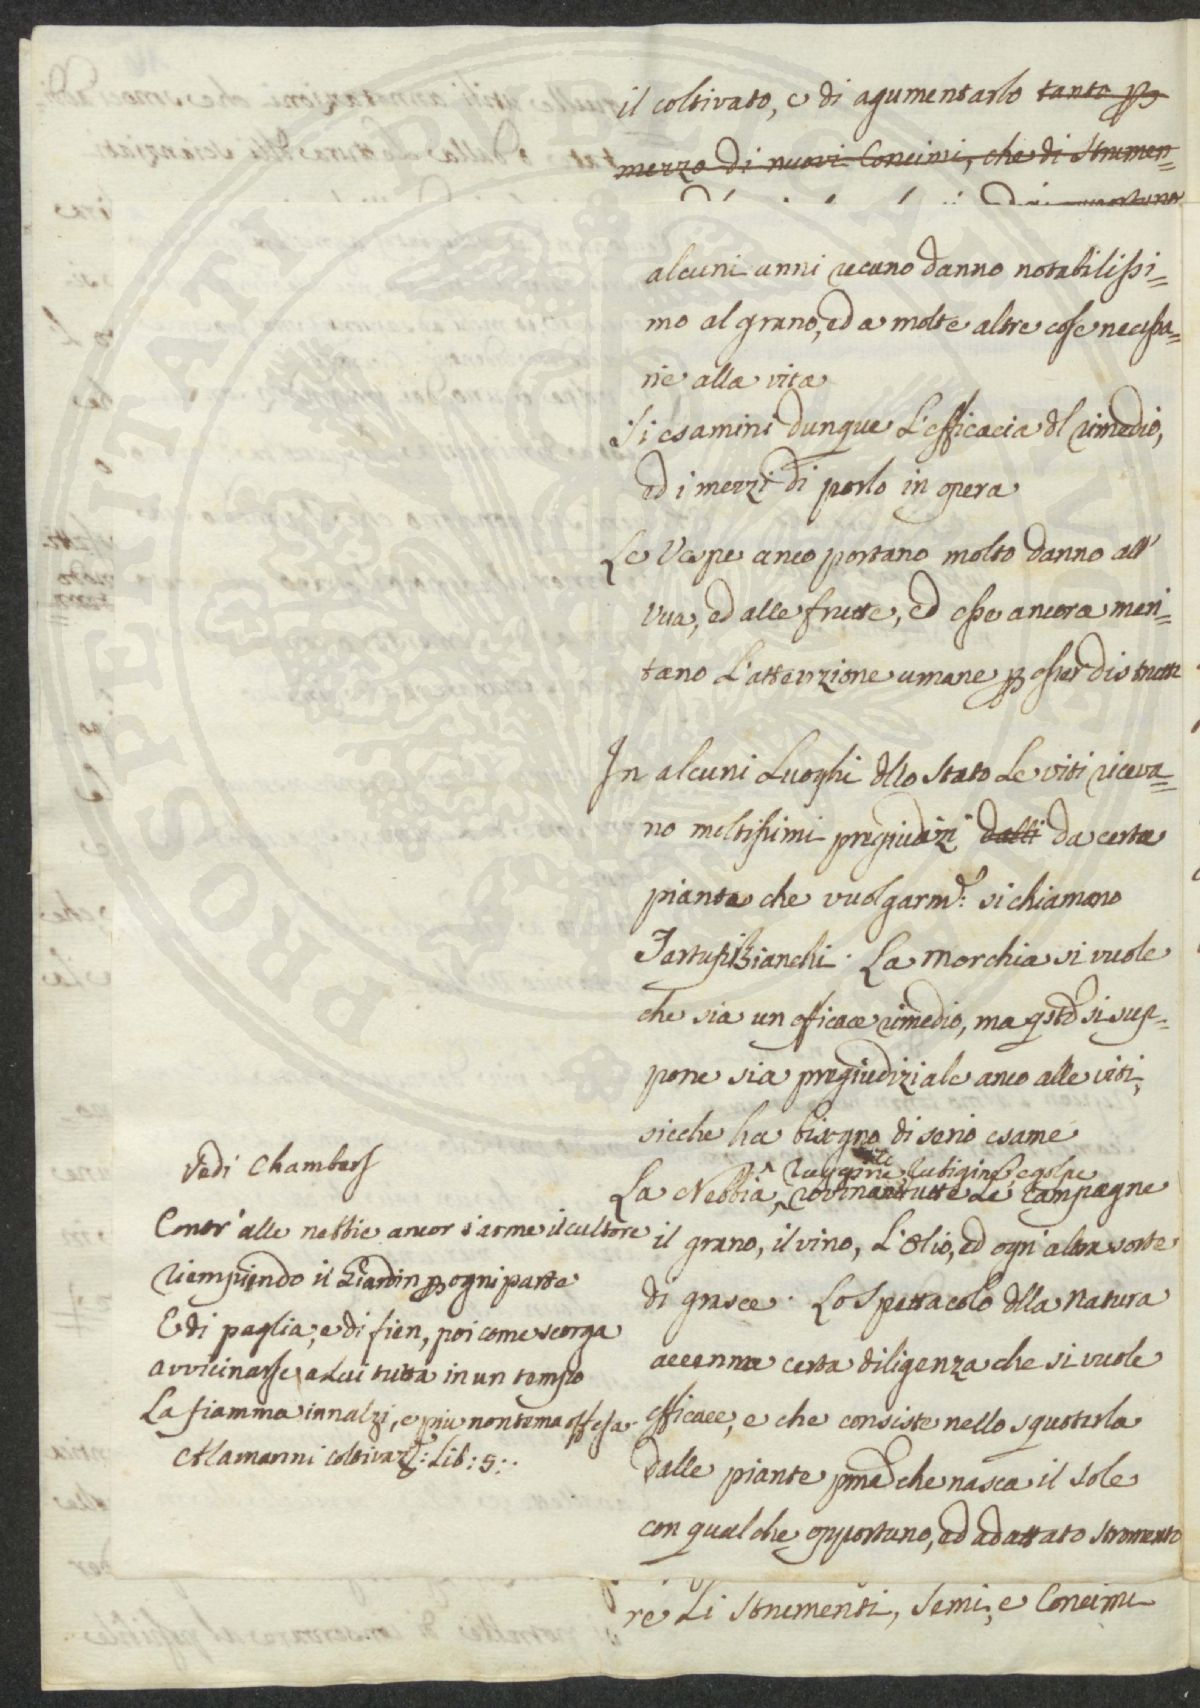 il coltivato, e di agumentarlo tanto p
mezzo di nuovi Concimi, che di Strumen=
alcuni anni recano danno notabilissi=
mo al grano, ed a molte altre cose necessa=
rie alla vita
Si esamini dunque L'efficacia dl rimedio,
ed i mezzi di porlo in opera
Le Vespe anco portano molto danno all'
Uva, ed alle frutte, ed esse ancora meri=
tano L'attenzione umana p esser distrutte
In alcuni Luoghi dllo Stato Le viti riceva=
no moltissimi pregiudizi dalli da certe
piante che vuolgarmte: si chiamano
Tartufi Bianchi. La Morchia si vuole
che sia un efficace rimedio, ma qsto si sup=
pone sia pregiudiziale anco alle viti,
sicche ha bisogno di serio esame
Ruggine, Rubigine, e golpe
La Nebbia, rovinano tutte Le Campagne
il grano, il vino, L'Olio, ed ogn'altra sorte
di grasce. Lo Spettacolo dlla Natura
accenna certa diligenza che si vuole
efficace, e che consiste nello squoterla
dalle piante pma che nasca il Sole
con qualche opportuno, ed adattato stromento
re Li Strumenti, Semi, e Concimi
Vedi Chambers
Contr'alle nebbie ancor s'arme il cultore
Riempiendo il Giardin p ogni parte
E di paglia, e di fien, poi come scorga
avvicinarse a Lui tutta in un tempo
La fiamma innalzi, e piu non tema offesa.
Alamanni Coltivaz: Lib: 5:.